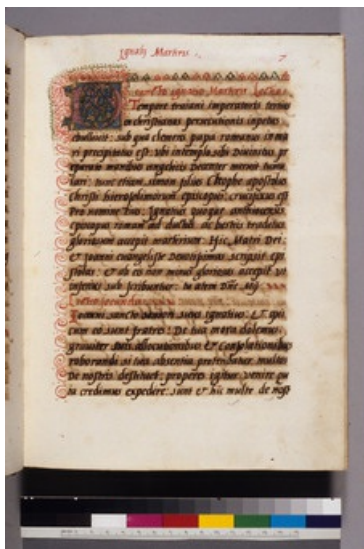 Ignatij Martiris
7
De sancto ignatio Martiris Lectio
Tempore traiani imperatoris tertius
in christianos persecutionis inpetus
ebulliuit: sub qua clemens papa romanus in ma
ri precipitatus est: ubi in templo sibi diuinitus pr
eparato manibus angelicis
lari: tunc etiam simon filius Cleophe apostolus
christi hierosolimorum episcopus crucifixus est
pro nomine Ignatius quoque anthiocenus
episcopus romam ad ductus ac bestiis traditus
gloriosum accepit martirium. Hic Matri Dei
& Joanni euangeliste deuotissimas scripsit epi
stolas & ab eo non minus gloriosas accepit ut
inferius sub scribuntur: tu autem
Lectio secunda
Joanni sancto seniori suus ignatius. & qui
cum eo sunt fratres: De tua mora dolemus
grauiter suis allocutionibus & consolationibus
roborandi si tua absentia pretendatur multos
de nostris destituet: properes igitur uenire qu
ia credimus expedire: sunt & hic multe de nost